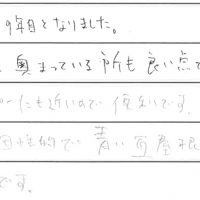 9年目となりました。
奥まっている所も良い点で
ーたも近いので便利です。
個性的で青い瓦屋根
です。